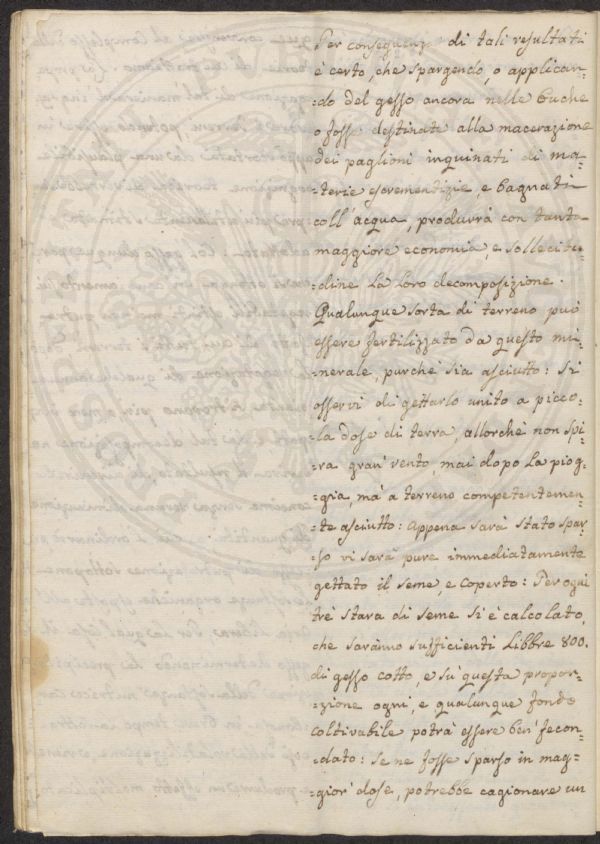 Per conseguenza di tali resultati
è certo, che spargendo, o applican=
=do del gesso ancora nelle buche
o fosse destinate alla macerazione
dei paglioni inquinati di ma=
=terie escrementizie, e bagnati
coll'acqua, produrrà con tanta
maggiore economia, e sollecitu=
=dine la loro decomposizione.
Qualunque sorta di terreno può
essere fertilizzato da questo mi=
=nerale, purchè sia asciutto: Si
osservi di gettarlo unito a picco=
=la dose di terra, allorchè non spi=
=ra gran' vento, mai dopo la piog=
=gia, mà a terreno competentemen=
=te asciutto: Appena sarà stato spar=
=so vi sarà pure immediatamente
gettato il seme, e coperto: Per ogni
trè stara di seme si è calcolato,
che saranno sufficienti Libbre 800.
di gesso cotto, e sù questa propor=
=zione ogni, e qualunque fondo
coltivabile potrà essere ben' fecon=
=dato: Se ne fosse sparso in mag=
=gior' dose, potrebbe cagionare un